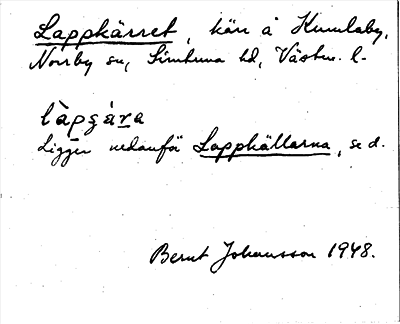 Lappkärret, kärr å Kumlaby,
Norrby sn, Simtuna hd, Västm. l.
làpçára
Ligger nedanför Lappkällarna, se d.
Bernt Johansson 1948.